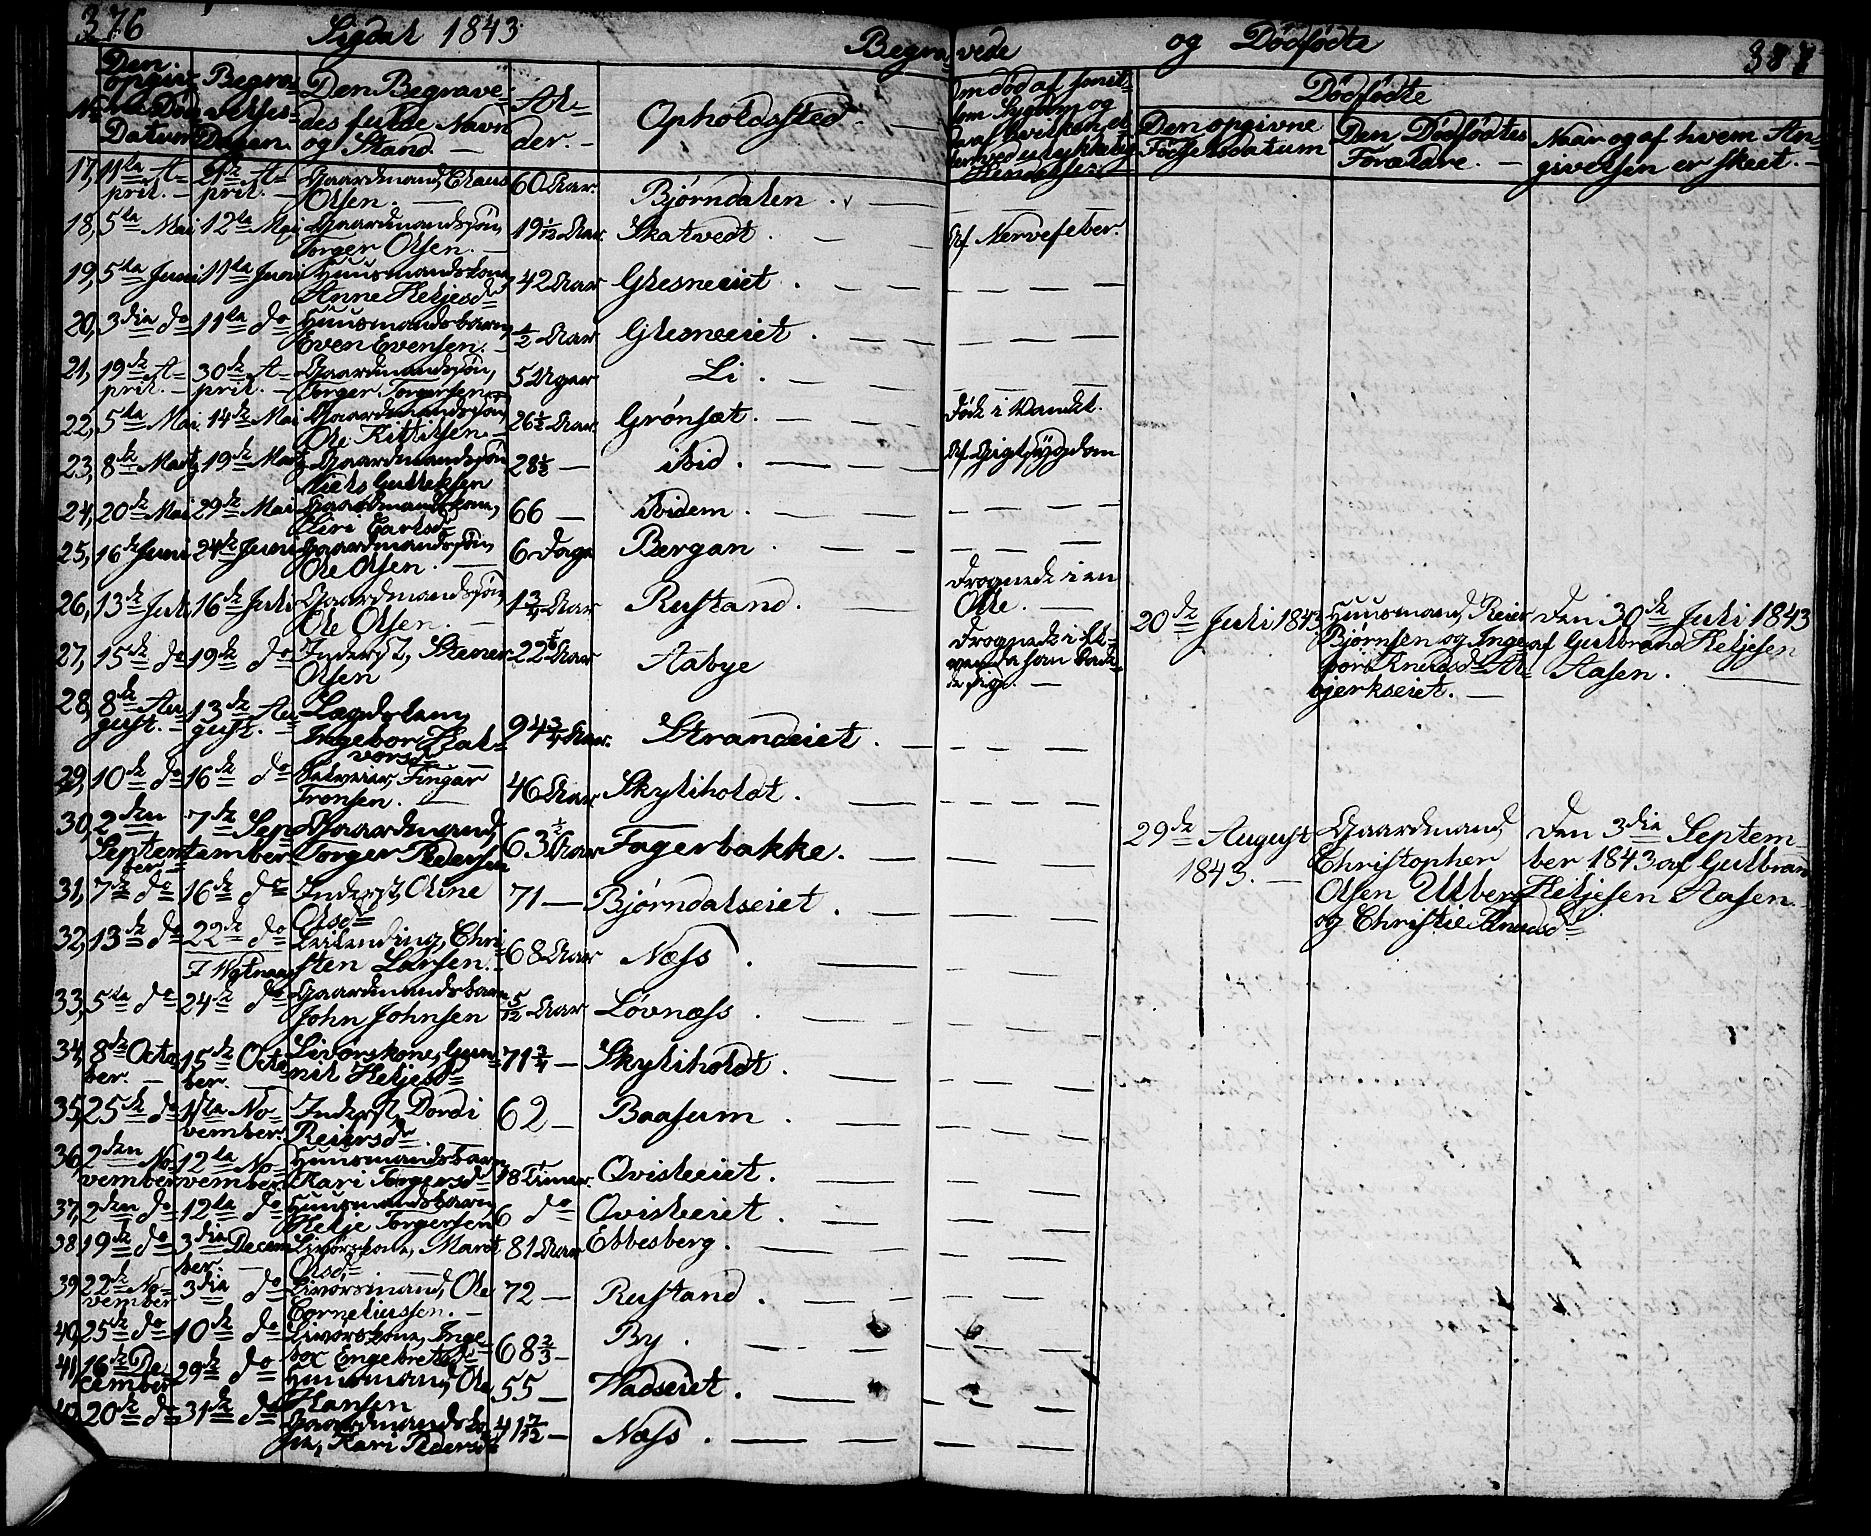 376 Sigdal 1843. Begravede og Dødfødte
Den opgivne Døds Datum
Begravelses-Dagen.
Den Begravedes fulde Navn og Stand
Alder.
Opholdssted
Dødfødte
Den opgivne Fødselsdatum
Den Dødfødtes Forældre.
Naar og af hvem Angivelsen er skeet.
17, 11te April. April. Gaardmand, Olsen. 60 Aar. Bjørndalen.
18, 5te Mai 12te Mai Gaardmandssøn, Torger Olsen. 19 1/12 Aar. Skatvedt. Af Nervefeber.
19, 5te Juni 11te Juni Huusmandskone, Anne Heljesd. 42 Aar Glesneeiet.
20, 3die do 11te do Huusmandsbarn, Even Evensen. 1/2 Aar Glesneeiet.
21, 19de April. 30de April. Gaardmandssøn, Torger Torgersen. 5 Uger Li.
22, 5te Mai. 14de Mai Gaardmandssøn, Ole Kittilsen. 26 1/2 Aar. Grønsæt.
23, 8de Martz 19de Martz Gaardmandssøn Niels Gulleksen 28 1/2 ibid. Af Gigtsygdom
24, 20de Mai 29de Mai Gaardmandskone, Siri Carlsd. 66 ibidem.
25, 16de Juni 24de Juni Gaardmandssøn, Ole Olsen. 6 Dage Bergan.
26, 13de Juli 16de Juli Gaardmandssøn, Ole Olsen. 1 3/4 Aar Rustand. Drognede i en
27, 15de do 19de do Inderst, Stener Olsen 22 Aar Aabye Drognede i da han badede sig.
20de Juli 1843 Huusmand, Reier Bjørnsen og Ingebor Knudsd. Den 30de Juli 1843 af Gulbrand Heljesen Aasen.
28, 8de August. 13de August. Lægdslem, Ingebor Halvorsd. 94 3/4 Aar. Strandeiet.
29, 10de do 16de do Fingar Tronsen. 46 Aar Skyliholdt.
30, 2den September 7de September Gaardmand, Torger Pedersen 63 1/2 Aar Fagerbakke.
29de August 1843. Gaardmand, Christopher Olsen Ulberg og Christie Knudsd. Den 3die September 1843 af Gulbrand Heljesen Aasen.
31, 7de do 16de do Inderst, Oline Olsd. 71 Bjørndalseiet.
32, 13de do 22de do Leilending, Christen Larsen. 68 Aar Næss.
33, 5te do 24de do Gaardmandsbarn John Johnsen 5/12 Aar Løvnæss
34, 8de October. 15de October. Livørskone, Gunnil Heljesd. 71 3/4 Skyliholdt.
35, 25de do November. Inderst, Dordi Reiersd. 62 Baasum
36, 2den November 12te November Huusmandsbarn Kari Torgersd. 18 Timer. Qvisleeiet.
37, 2den do 12te do Huusmandsbarn, Helje Torgersen 6 do Qvisleeiet.
38, 19de do 3die December. Livørskone, Marit Olsd. 81 Aar Ebbesberg.
39, 22de November 3die do Livørsmand, Ole Corneliussen. 72 Rustand.
40, 25de do 10de do Livørskone, Ingebor Engebretsd. 68 2/3 By.
41, 16de December 29de do Huusmand, Ole Hansen 55 Vadseiet.
20de do 31de do Kari Pedersd. 41 7/12 Næss.